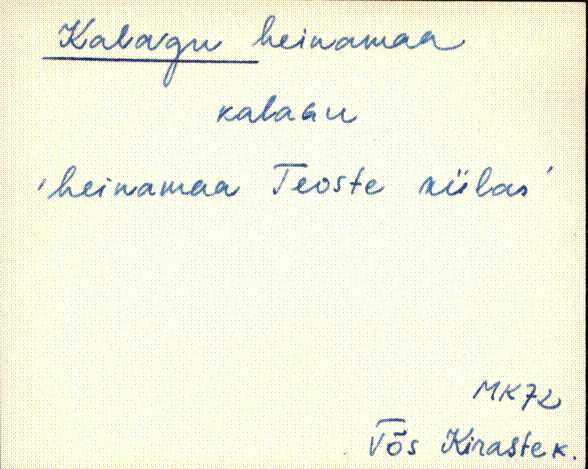 Kalagu heinamaa
kalaGu
'heinamaa Teoste külas'
MK72
Võs Kirastek.